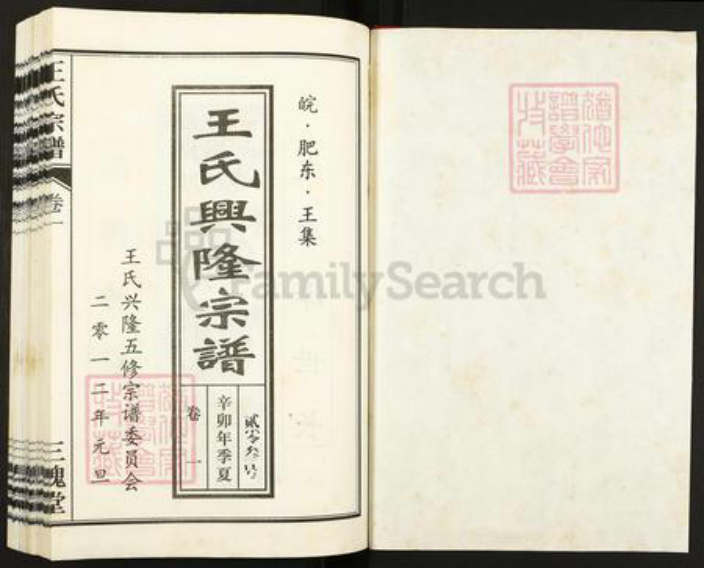 皖·肥东·王集
王氏興隆宗譜
贰零叁号
辛卯年季夏
卷一
王氏兴隆五修宗谱委员会
二零一二年元旦
王氏宗譜
卷一
三槐堂
FamilySearch
譜學會
收藏